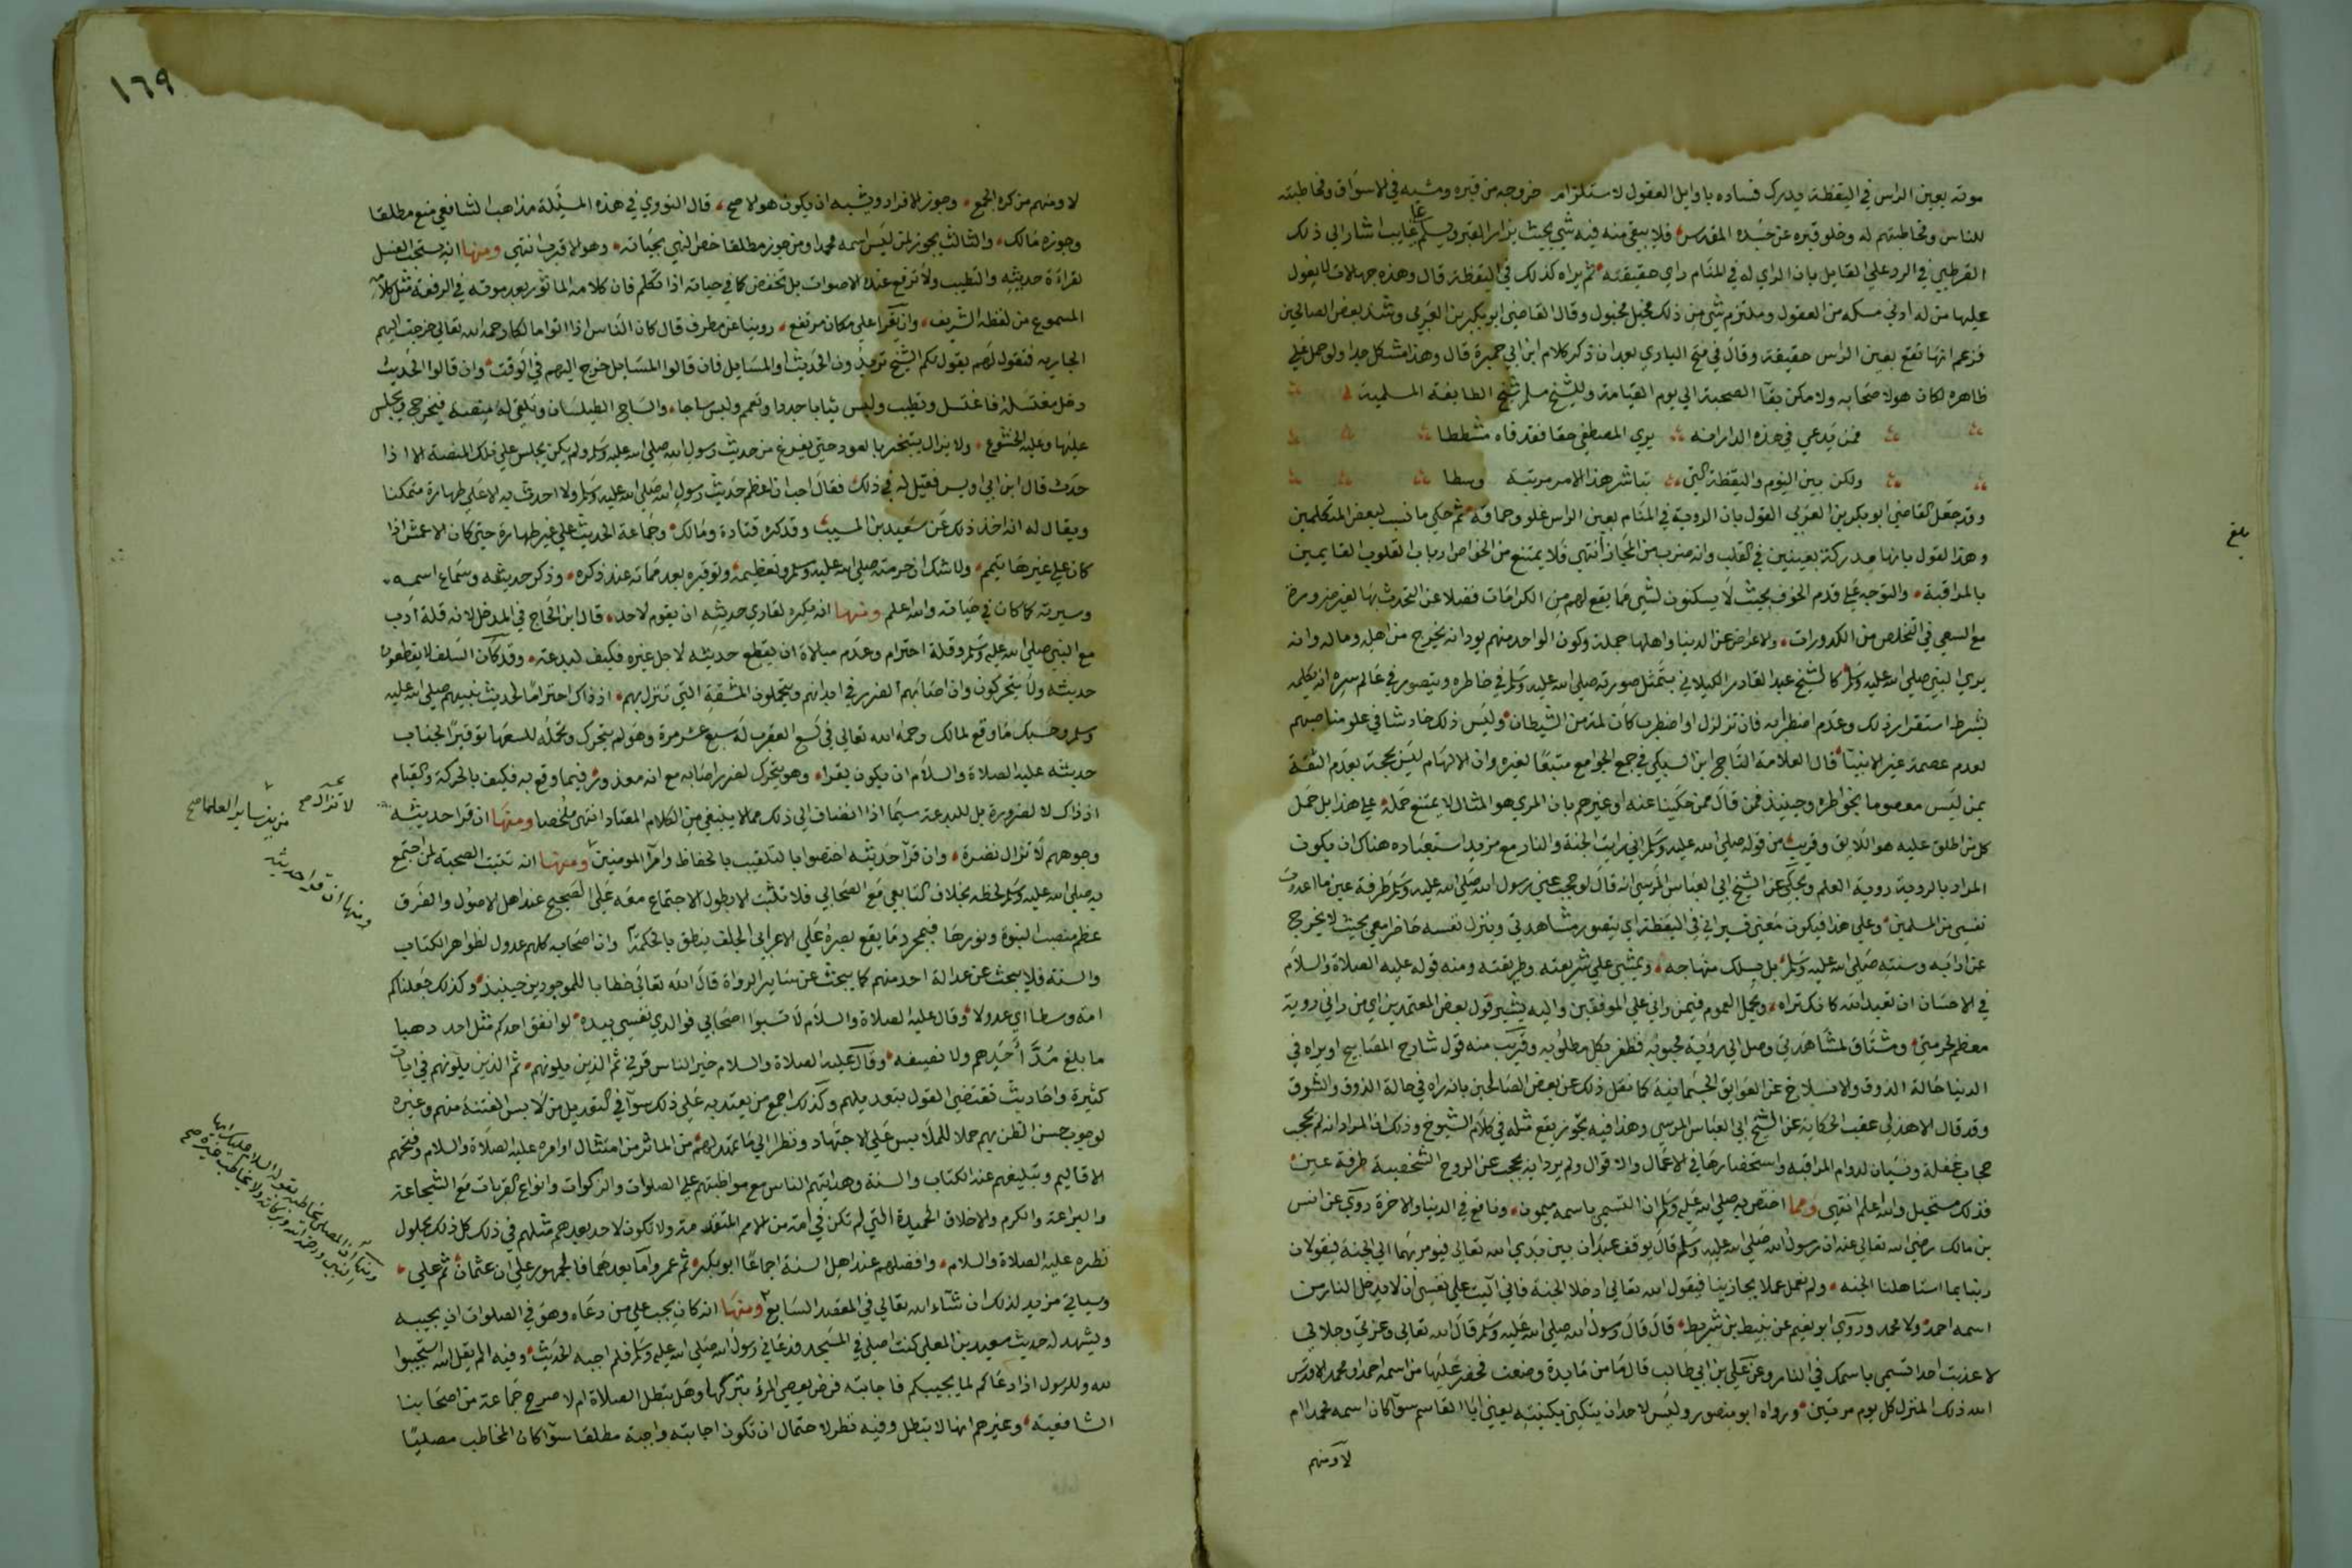 موته بعين الراس في اليقظة ويدرك فساده باوايل العقول لاستلزام خروجه من قبره ومشيه في الاسواق ومخاطبته
للناس ومخاطبتهم له وخلو قبره عن جسده المقدس فلا يبقى منه فيه شي بحيث يزار القبر ويسلم على غايب اشار الى ذلك
القرطبي في الرد على القايل بان الراي له في المنام راي حقيقته ثم يراه كذلك في اليقظة قال وهذه جهالات لا يقول
عليها من له ادنى مسكه من العقول وملتزم شي من ذلك مختل مخبول وقال القاضي ابو بكر بن العربي وشذ بعض الصالحين
فزعم انها تقع بعين الراس حقيقة وقال في فتح الباري بعد ان ذكر كلام ابن ابي جمرة قال وهذا مشكل جدا ولو حمل على
ظاهره لكان هولا صحابه ولامكن بقآ الصحبة الى يوم القيامة وللشيخ مسلم شيخ الطايفة المسلمية
فمن يدعي في هذه الدار انه يرى المصطفى حقا فقد فاه مشططا
ولكن بين النوم واليقظة التي تباشر هذا الامر مرتبة وسطا
وقد جعل القاضي ابو بكر بن العربي القول بان الروية في المنام بعين الراس غلو وحماقة ثم حكى ما نسب لبعض المتكلمين
وهذا القول بانها مدركة بعينين في القلب وانه ضرب من المجاز انتهى فلا يمتنع من الخواص ارباب القلوب القايمين
بالمراقبة والتوجه على قدم الخوف بحيث لا يسكنون لشي مما يقع لهم من الكرامات فضلا عن التحدث بها لغير ضرورة
مع السعي في التخلص من الكدورات والاعراض عن الدنيا واهلها جملة وكون الواحد منهم يود انه يخرج من اهله وماله وانه
يرى النبي صلى الله عليه وسلم كالشيخ عبد القادر الكيلاني يتمثل صورته صلى الله عليه وسلم في خاطره ويتصور في عالم سره انه يكلمه
بشرط استقرار ذلك وعدم اضطرابه فان تزلزل او اضطرب كان لمة من الشيطان وليس ذلك خادشا في علو مناصبهم
لعدم عصمة غير الانبيآ قال العلامة التاج ابن السبكي في جمع الجوامع متبعا لغيره وان الالهام ليس بحجة لعدم الثقة
بمن ليس معصوما بخواطره وحينيذ فمن قال ممن حكينا عنه او غيرهم بان المري هو المثال لا يمتنع حمله على هذا بل حمل
كل من اطلق عليه هو اللايق وقريب من قوله صلى الله عليه وسلم اني رايت الجنة والنار مع مزيد استبعاده هناك ان يكون
المراد بالروية روية العلم ويحكى عن الشيخ ابي العباس المرسي انه قال لو حجب عني رسول الله صلى الله عليه وسلم طرفة عين ما اعددت
نفسي من المسلمين وعلى هذا فيكون معنى فسيراني في اليقظة اي يتصور مشاهدتي وينزل نفسه حاضر معي بحيث لا يخرج
عن ادابه وسنته صلى الله عليه وسلم بل يسلك منهاجه ويمشي على شريعته وطريقته ومنه قوله عليه الصلاة والسلام
في الاحسان ان تعبد الله كانك تراه ويحمل العموم فيمن راني على الموفقين واليه يشير قول بعض المعتمدين اي من راني روية
معظم لحرمتي ومشتاق لمشاهدتي وصل الى روية محبوبه وظفر بكل مطلوبه وقريب منه قول شارح المصابيح او يراه في
الدنيا حالة الذوق والانسلاخ عن العوايق الجسمانية كما نقل ذلك عن بعض الصالحين بانه راه في حالة الذوق والشوق
وقد قال الاهدل عقب الحكاية عن الشيخ ابي العباس المرسي وهذا فيه تجوز يقع مثله في كلام الشيوخ وذلك ان المراد انه لم يحجب
حجاب غفلة ونسيان لدوام المراقبة واستحضارها في الاعمال والاقوال ولم يرد انه يحجب عن الروح الشخصية طرفة عين
فذلك مستحيل والله اعلم انتهى ومما اختص به صلى الله عليه وسلم ان التسمي باسمه ميمون ونافع في الدنيا والاخرة روي عن انس
بن مالك رضي الله تعالى عنه ان رسول الله صلى الله عليه وسلم قال يوقف عبدان بين يدي الله تعالى فيومر بهما الى الجنة فيقولان
ربنا بما استاهلنا الجنه ولم نعمل عملا يجازينا فيقول الله تعالى ادخلا الجنة فاني آليت على نفسي ان لا يدخل النار من
اسمه احمد ولا محمد وروى ابو نعيم عن نبيط بن شريط قال قال رسول الله صلى الله عليه وسلم قال الله تعالى وعزتي وجلالي
لا عذبت احدا تسمى باسمك في النار وعن علي بن ابي طالب قال ما من مايدة وضعت فحضر عليها من اسمه احمد او محمد الا قدس
الله ذلك المنزل كل يوم مرتين ورواه ابو منصور وليس لاحد ان يتكنى بكنيته يعني ابا القاسم سوآ كان اسمه محمدا ام
لا ومنهم
بلغ
١٦٩
لا ومنهم من كره الجمع وجوز الافراد ويشبه ان يكون هو الاصح قال النووي في هذه المسئلة مذاهب الشافعي منع مطلقا
وجوزه مالك والثالث يجوز لمن ليس اسمه محمدا ومن جوز مطلقا خص النهي بحياته وهو الاقرب انتهى ومنها انه يستحب الغسل
لقراءة حديثه والتطيب ولا ترفع عنده الاصوات بل تخفض كما في حياته اذا تكلم فان كلامه الماثور بعد موته في الرفعة مثل كلامه
المسموع من لفظه الشريف وان يقرا على مكان مرتفع روينا عن مطرف قال كان الناس اذا اتوا مالكا رحمه الله تعالى خرجت اليهم
الجاريه فتقول لهم يقول لكم الشيخ تريدون الحديث او المسايل فان قالوا المسايل خرج اليهم في الوقت وان قالوا الحديث
دخل مغتسله فاغتسل وتطيب ولبس ثيابا جددا وتعمم ولبس ساجا والساج الطيلسان وتلقى له منصة فيخرج ويجلس
عليها وعليه الخشوع ولا يزال يتبخر بالعود حتى يفرغ من حديث رسول الله صلى الله عليه وسلم ولم يكن يجلس على تلك المنصة الا اذا
حدث قال ابن ابي اويس فقيل له في ذلك فقال احب ان اعظم حديث رسول الله صلى الله عليه وسلم ولا احدث به الا على طهارة متمكنا
ويقال له انه اخذ ذلك عن سعيد بن المسيب وقد كره قتادة ومالك وجماعة الحديث على غير طهارة حتى كان الاعمش اذا
كان على غيرها تيمم ولا شك ان حرمته صلى الله عليه وسلم وتعظيمه وتوقيره بعد مماته عند ذكره وذكر حديثه وسماع اسمه
وسيرته كما كان في حياته والله اعلم ومنها انه يكره لقاري حديثه ان يقوم لاحد قال ابن الحاج في المدخل لانه قلة ادب
مع النبي صلى الله عليه وسلم وقلة احترام وعدم مبالاة ان يقطع حديثه لاجل غيره فكيف لبدعة وقد كان السلف لا يقطعون
حديثه ولا يتحركون وان اصابهم الضرر في ابدانهم ويتحملون المشقة التي تنزل بهم اذ ذاك احتراما لحديث نبيهم صلى الله عليه
وسلم وحسبك ما وقع لمالك رحمه الله تعالى في لسع العقرب له سبع عشر مرة وهو لم يتحرك وتحمله للسعها توقيرا لجناب
حديثه عليه الصلاة والسلام ان يكون يقرا وهو يتحرك لضرر اصابه مع انه معذور فيما وقع به فكيف بالحركة والقيام
اذ ذاك لا لضرورة بل للبدعة سيما اذا انضاف الى ذلك مما لا ينبغي من الكلام المعتاد انتهى ملخصا ومنها ان قرا حديثه
وجوههم لا تزال نضرة وان قرآ حديثه اختصوا بالتلقيب بالحفاظ وامرآ المومنين ومنها انه تثبت الصحبة لمن اجتمع
به صلى الله عليه وسلم لحظه بخلاف التابعي مع الصحابي فلا تثبت الا بطول الاجتماع معه على الصحيح عند اهل الاصول والفرق
عظم منصب النبوة ونورها فبمجرد ما يقع بصره على الاعرابي الجلف ينطق بالحكمة وان اصحابه كلهم عدول لظواهر الكتاب
والسنة فلا يبحث عن عدالة احد منهم كما يبحث عن ساير الرواة قال الله تعالى خطابا للموجودين حينيذ وكذلك جعلناكم
امة وسطا اي عدولا وقال عليه الصلاة والسلام لا تسبوا اصحابي فوالذي نفسي بيده لو انفق احدكم مثل احد ذهبا
ما بلغ مد احدهم ولا نصيفه وقال عليه الصلاة والسلام خير الناس قرني ثم الذين يلونهم ثم الذين يلونهم في ايات
كثيرة واحاديث تقتضي القول بتعديلهم وكذلك اجمع من يعتد به على ذلك سوآ في التعديل من لابس الفتنة منهم وغيره
لوجوب حسن الظن بهم حملا للملابس على الاجتهاد ونظرا الى ما تمهد لهم من الماثر من امتثال اوامره عليه الصلاة والسلام وفتحهم
الاقاليم وتبليغهم عنه الكتاب والسنة وهدايتهم الناس مع مواظبتهم على الصلوات والزكوات وانواع القربات مع الشجاعة
والبراعة والكرم والاخلاق الحميدة التي لم تكن في امة من الامم المتقدمة ولا تكون لاحد بعدهم مثلهم في ذلك كل ذلك بحلول
نظره عليه الصلاة والسلام وافضلهم عند اهل السنة اجماعا ابو بكر ثم عمر واما بعدهما فالجمهور على ان عثمان ثم علي
وسياتي مزيد لذلك ان شآء الله تعالى في المقصد السابع ومنها انه كان يجب على من دعاه وهو في الصلوات ان يجيبه
ويشهد له حديث سعيد بن المعلى كنت اصلي في المسجد فدعاني رسول الله صلى الله عليه وسلم فلم اجبه الحديث وفيه الم يقل الله استجيبوا
لله وللرسول اذا دعاكم لما يحييكم فاجابته فرض يعصي المرؤ بتركها وهل تبطل الصلاة ام لا صرح جماعة من اصحابنا
الشافعية وغيرهم انها لا تبطل وفيه نظر لاحتمال ان تكون اجابته واجبة مطلقا سوآ كان المخاطب مصليا
لا تزال صح
من بين ساير العلما صح
ومنها ان قرا حديثه
ومنها ان المصلي يخاطبه بقوله السلام عليك ايها
النبي ورحمة الله وبركاته ولا يخاطب غيره صح